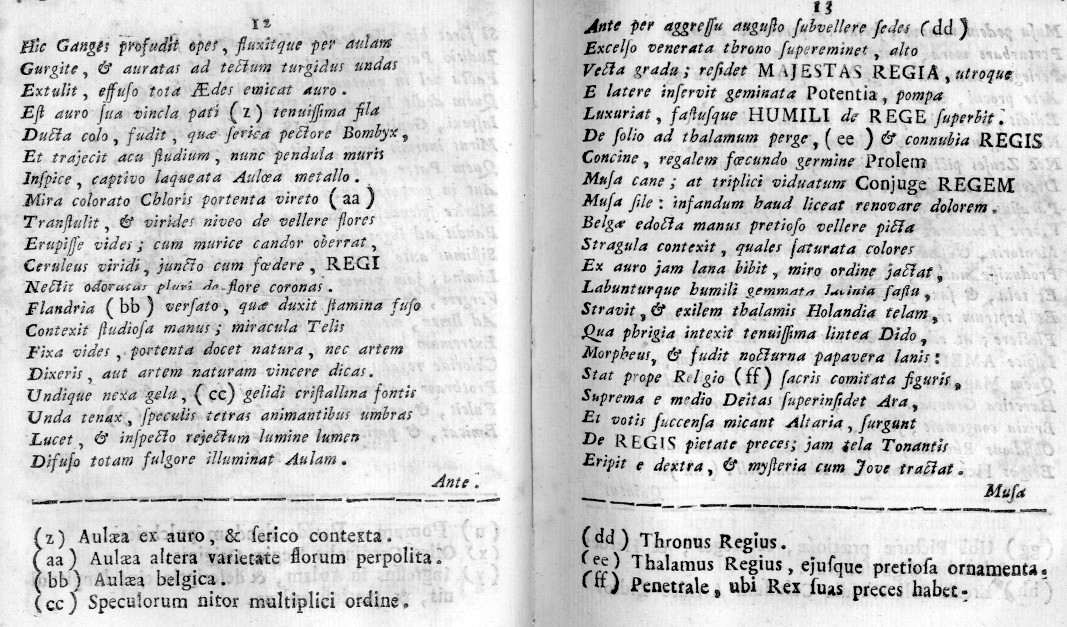 12
Hic Ganges profudit opes, fluxitque per aulam
Gurgite, & auratas ad tectum turgidus undas
Extulit, effuſo tota Ædes emicat auro.
Eſt auro ſua vincla pati (z) tenuiſſima fila
Ducta colo, fudit, quæ ſerica pectore Bombyx,
Et trajecit acu ſtudium, nunc pendula muris
Inſpice, captivo laqueata Aulæa metallo.
Mira colorato Chloris portenta vireto (aa)
Tranſtulit, & virides niveo de vellere flores
Erupiſſe vides; cum murice candor oberrat,
Ceruleus viridi, juncto cum fœdere, REGI
Nectit odoratas pluri de flore coronas.
Flandria (bb) verſato, quæ duxit ſtamina fuſo
Contexit ſtudioſa manus; miracula Telis
Fixa vides, portenta docet natura, nec artem
Dixeris, aut artem naturam vincere dicas.
Undique nexa gelu, (cc) gelidi criſtallina fontis
Unda tenax, ſpeculis tetras animantibus umbras
Lucet, & inſpecto rejectum lumine lumen
Difuſo totam fulgore illuminat Aulam.
Ante.
(z) Aulæa ex auro, & ſerico contexta.
(aa) Aulæa altera varietate florum perpolita.
(bb) Aulæa belgica.
(cc) Speculorum nitor multiplici ordine.
13
Ante per aggreſſu auguſto ſubvellere ſedes (dd)
Excelſo venerata throno ſupereminet, alto
Vecta gradu; reſidet MAJESTAS REGIA, utroque
E latere inſervit geminata Potentia, pompa
Luxuriat, faſtuſque HUMILI de REGE ſuperbit.
De ſolio ad thalamum perge, (ee) & connubia REGIS
Concine, regalem fœcundo germine Prolem
Muſa cane; at triplici viduatum Conjuge REGEM
Muſa ſile: infandum haud liceat renovare dolorem.
Belgæ edocta manus pretioſo vellere picta
Stragula contexit, quales ſaturata colores
Ex auro jam lana bibit, miro ordine jactat,
Labunturque humili gemmata lacinia faſtu,
Stravit, & exilem thalamis Holandia telam,
Qua phrigia intexit tenuiſſima lintea Dido,
Morpheus, & fudit nocturna papavera lanis:
Stat prope Religio (ff) ſacris comitata figuris,
Suprema e medio Deitas ſuperinſidet Ara,
Et votis ſuccenſa micant Altaria, ſurgunt
De REGIS pietate preces; jam tela Tonantis
Eripit e dextra, & myſteria cum Jove tractat.
Muſa
(dd) Thronus Regius.
(ee) Thalamus Regius, ejuſque pretioſa ornamenta.
(ff) Penetrale, ubi Rex ſuas preces habet.